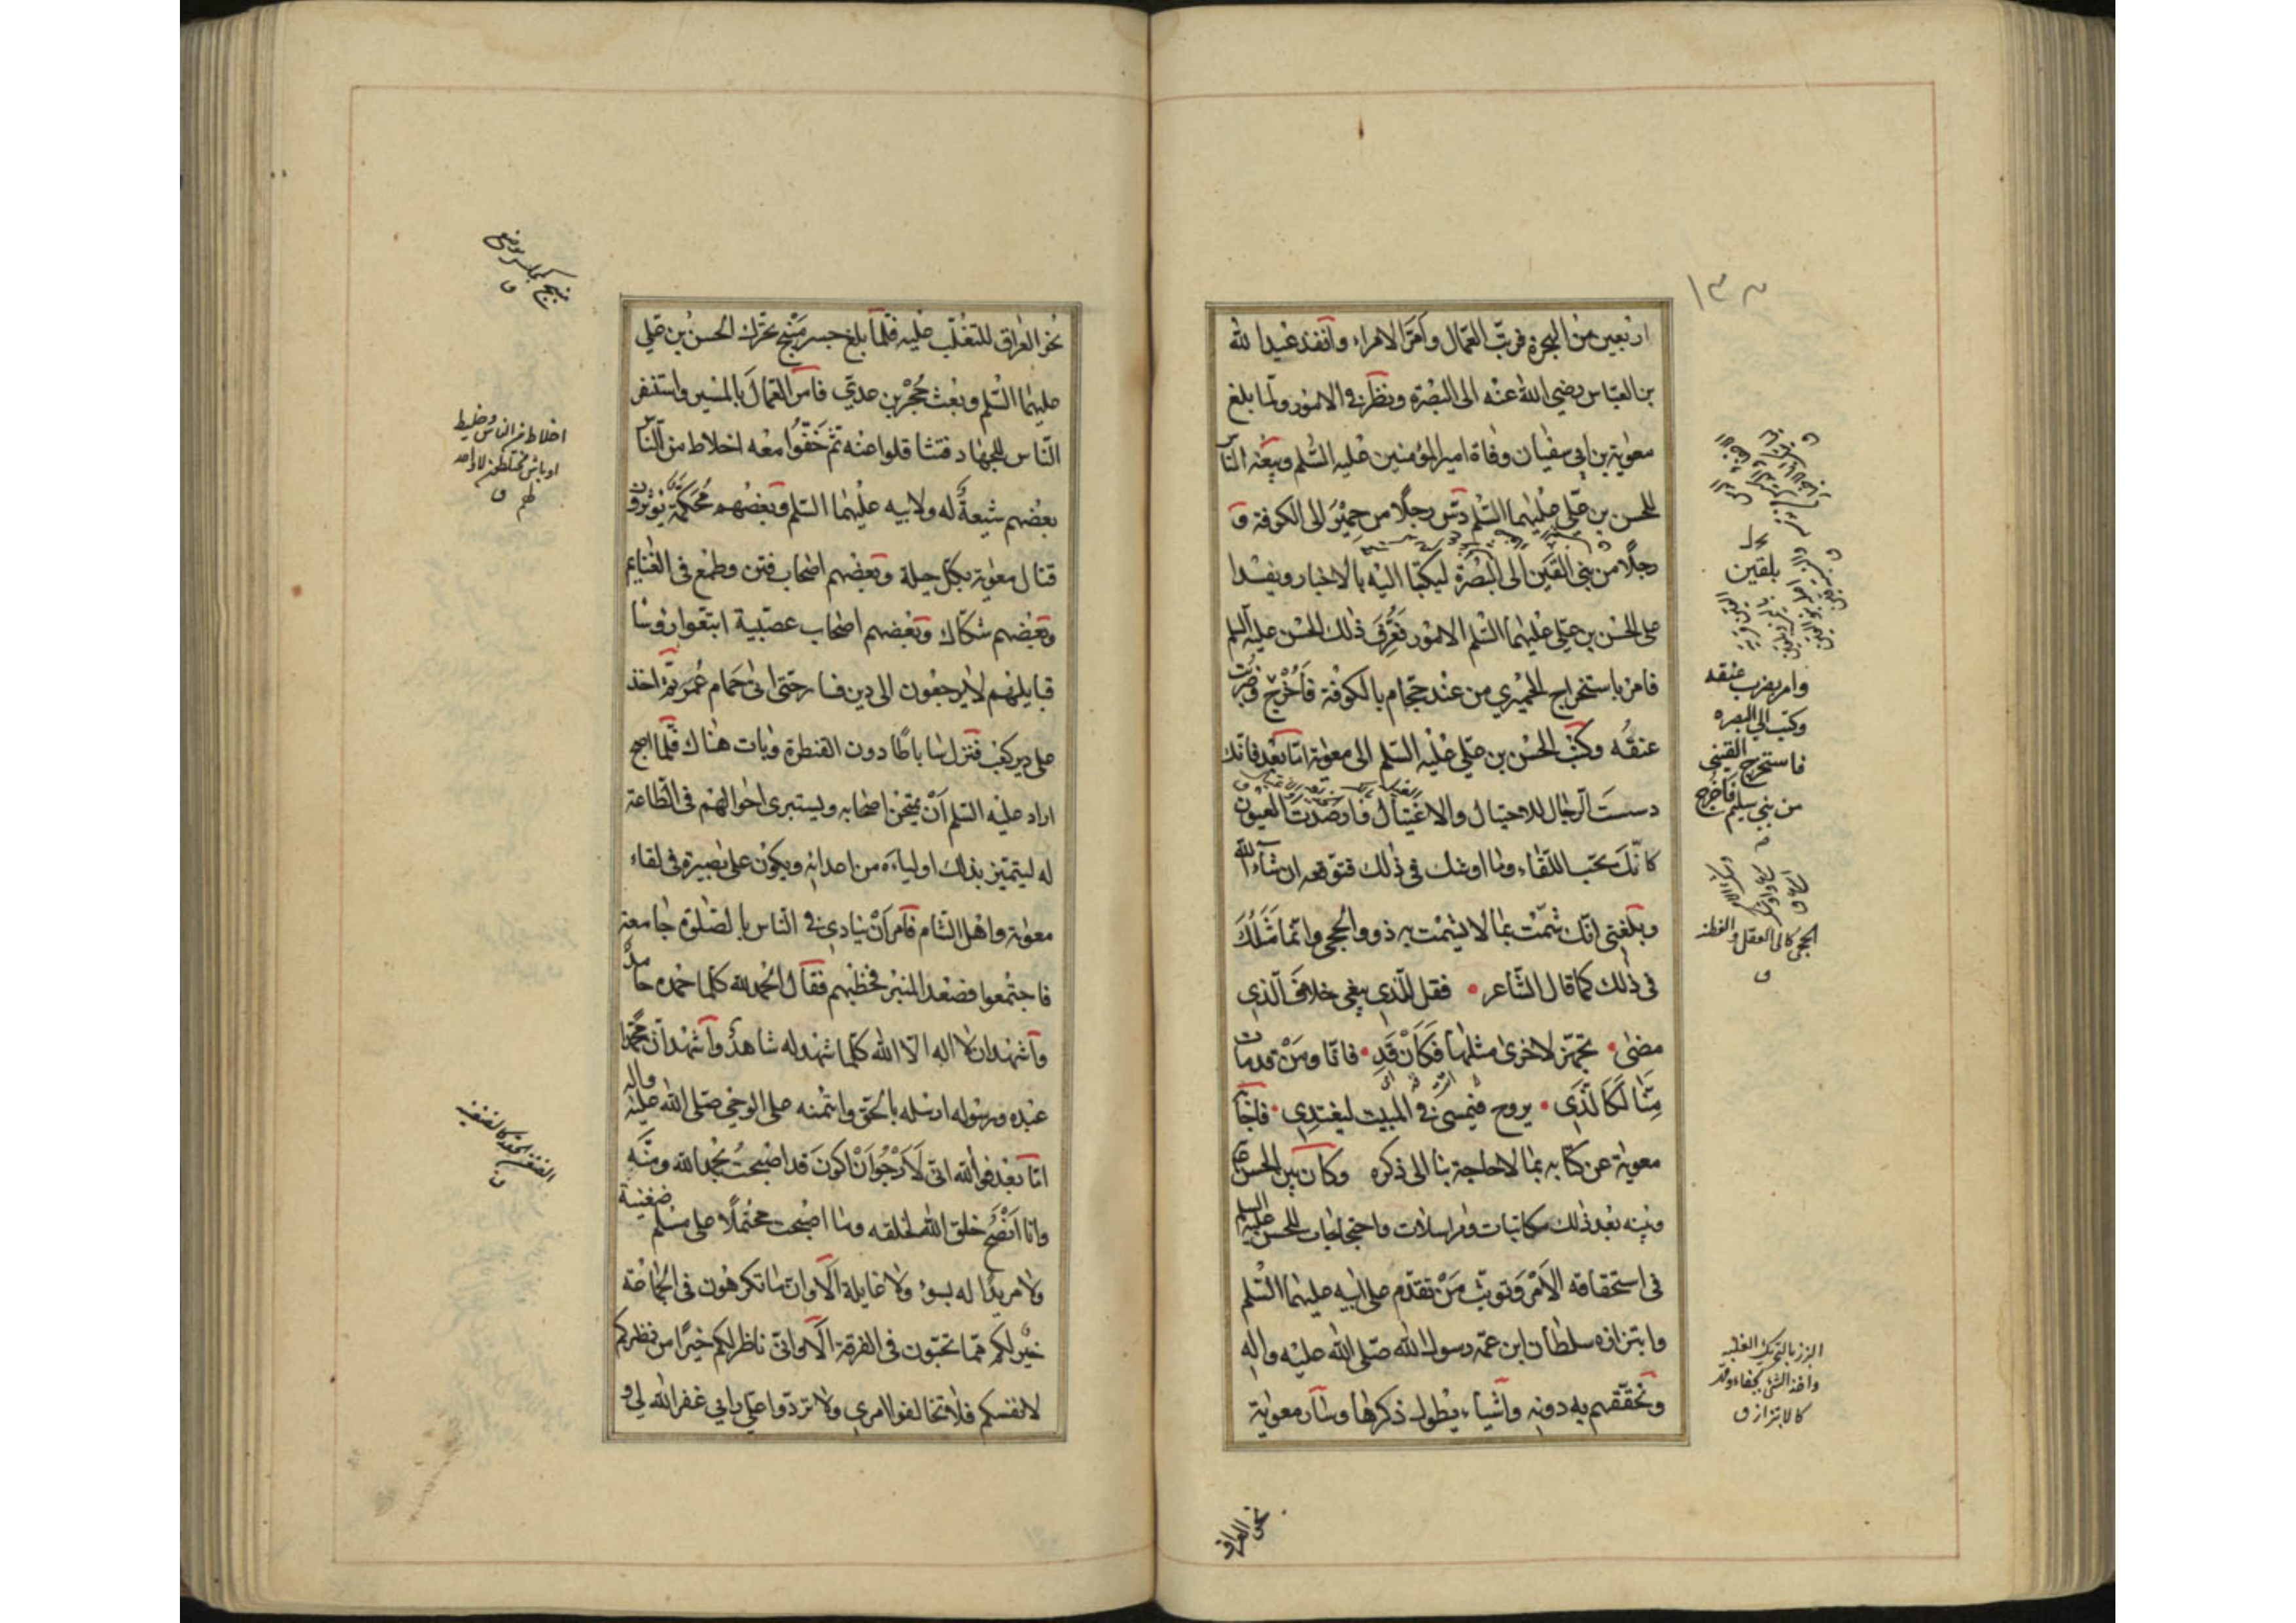 ١٣٨
اربعين من الهجرة فرتب العمال وامّر الامراء وانفذ عبدالله
بن العبّاس رضي الله عنه الى البصرة ونظر في الامور ولمّا بلغ
معوية بن ابي سفيان وفاة اميرالمؤمنين عليه السّلم وبيعة النّاس
للحسن بن عليّ عليهما السّلم دسّ رجلًا من حِمْيَر الى الكوفة و
رجلًا من بني القَين الى البصرة ليكتبا اليه بالاخبار ويفسدا
على الحسن بن عليّ عليهما السّلم الامور فعَرِفَ ذلك الحسن عليه السلم
فامر باستخراج الحميري من عند حجّام بالكوفة فَاُخْرِجَ وضربت
عنقُه وكتب الحسن بن عليّ عليه السّلم الى معوية امّا بعد فانّك
دسستَ الرّجال للاحتيال والاغتيال فارصدت العيون
كانّكَ تحبّ اللّقاء وما اوشك في ذلك فتوقعه ان شآء الله
وبلغني انّك شمّتّ بما لا يشمت به ذووالحجى وانّما مَثَلُكَ
في ذلك كما قال الشّاعر • فقل للّذي يبغي خلافَ الّذي
مضى • تجهّز لاخرى مثلها فَكَاَنْ قَدِ • فانّا ومَنْ قدمات
مِنّا لَكَالّذَي • يروح فيمسي في المبيت ليغتدي • فاجابه
معوية عن كتابه بما لا حاجة بنا الى ذكره وكان بين الحسن ع
وبينه بعد ذلك مكاتبات ومراسلات واحتجاجات للحسن عليه السلم
في استحقاقه الاَمْر وَتوثّب مَنْ تقدّم على ابيه عليهما السّلم
وابتزازه سلطان ابن عمّه رسول الله صلّى الله عليه واله
وتحقّقهم به دونه واشياء يطول ذكرها وسار معوية
بلقين
وامر بضرب عنقه
وكتب الى البصره
فاستخرج القيني
من بني سليم فَاُخْرِجَ
الحجى كالى العقل والفطنة
ق
البزز بالتحريك الغلبه
واخذ الشئ بجفاء وقهر
كالابتزاز ق
نحو العراق
نحو العراق للتغلّب عليه فلمّا بلغ جسر مَنْبِج تحرّك الحسن بن علي
عليهما السّلم وبعث حُجْر بن عديّ فامر العمالَ بالمسير واستنفر
النّاس للجهاد فتثاقلوا عنه ثمّ خَفّوا معه اخلاط من النّاس
بعضهم شيعةٌ له ولابيه عليهما السّلم وبعضهم مُحَكِّمَة يوثرون
قتال معوية بكلّ حيلة وبعضهم اصحاب فتن وطمع في الغنايم
وبعضهم شكّاك وبعضهم اصحاب عصبيّة اتّبعوا رؤسا
قبايلهم لا يرجعون الى دين فسار حتّى اتى حَمام عُمَر ثمّ اخذ
على دير كعب فنزل ساباطًا دون القنطرة وبات هناك فلمّا اصبح
اراد عليه السّلم اَنْ يمتحن اصحابه ويستبرى احوالهم في الطّاعة
له ليتميّز بذلك اولياءه من اعدائه ويكون على بصيرة في لقاء
معوية واهل الشّام فامر اَنْ ينادي في النّاس بالصّلوة جامعة
فاجتمعوا فصعد المنبر فخطبهم فقال الحمد لله كلّما حمده حامدٌ
واشهد ان لا اله الّا الله كلّما شهد له شاهدٌ واَشهد انّ محمّدا
عبده ورسوله ارسله بالحقّ وائتمنه على الوحي صلّى الله عليه واله
امّا بعد فوالله انّي لَاَرْجُو اَنْ اكونَ قد اصبحتُ بحمدالله ومنّه
وانا اَنْصَحُ خلق الله لخلقه وما اصبحت محتملًا على مسلم ضغينة
ولا مريدًا له بسوء ولا غايلة اَلا وان ما تكرهون في الجماعة
خيرٌ لكم ممّا تحبّون في الفرقة اَلا وانّي ناظر لكم خيرًا من نظركم
لانفسكم فلا تخالفوا امري ولا تردّوا عليّ رأيي غفر الله لي و
منبج كمجلس موضع
ق
اخلاط من الناس وخليط
اوباش مختلطون لا واحد
لهم ق
الضغن الحقد كالضغينة
ق